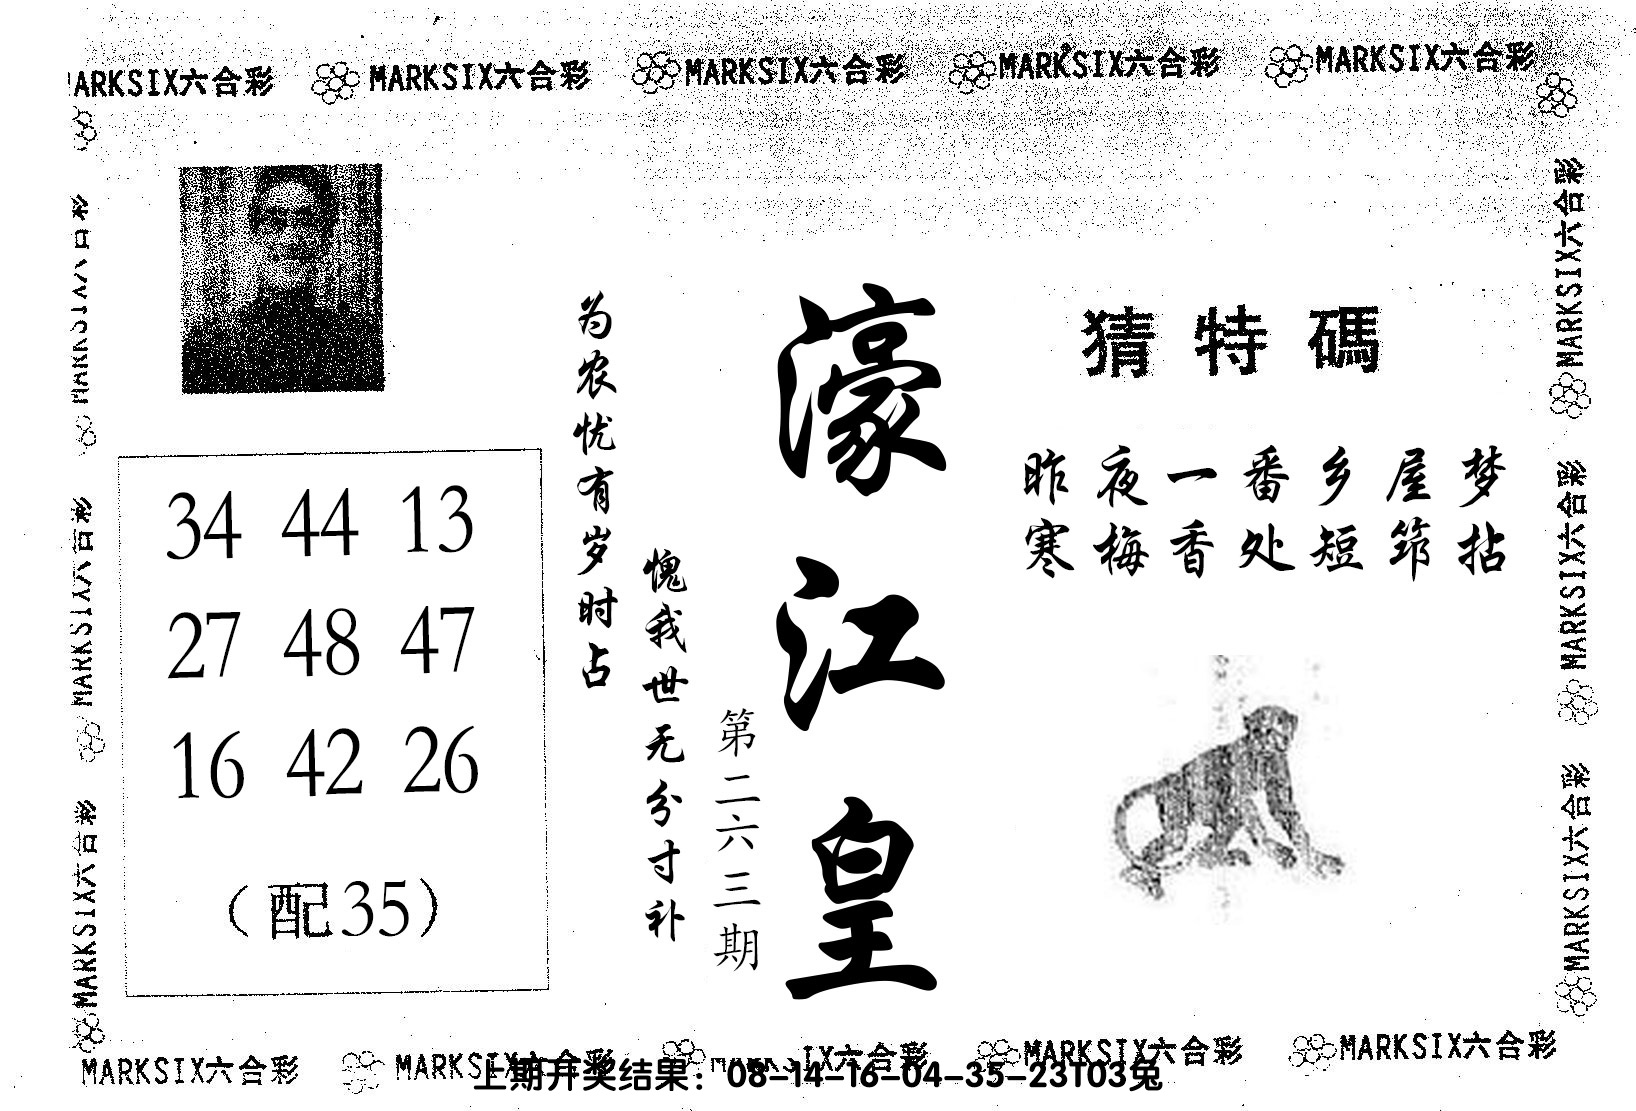 MARKSIX六合彩 MARKSIX六合彩 MARKSIX六合彩 MARKSIX六合彩 MARKSIX六合彩
濠江皇
第二六三期
猜特碼
昨夜一番乡屋梦
寒梅香处短筇拈
为农忧有岁时占
愧我世无分寸补
34 44 13
27 48 47
16 42 26
（配35）
MARKSIX六合彩
MARKSIX六合彩
MARKSIX六合彩
MARKSIX六合彩
MARKSIX六合彩
MARKSIX六合彩
MARKSIX六合彩 MARKSIX六合彩 MARKSIX六合彩 MARKSIX六合彩
上期开奖结果：08-14-16-04-35-23T03兔